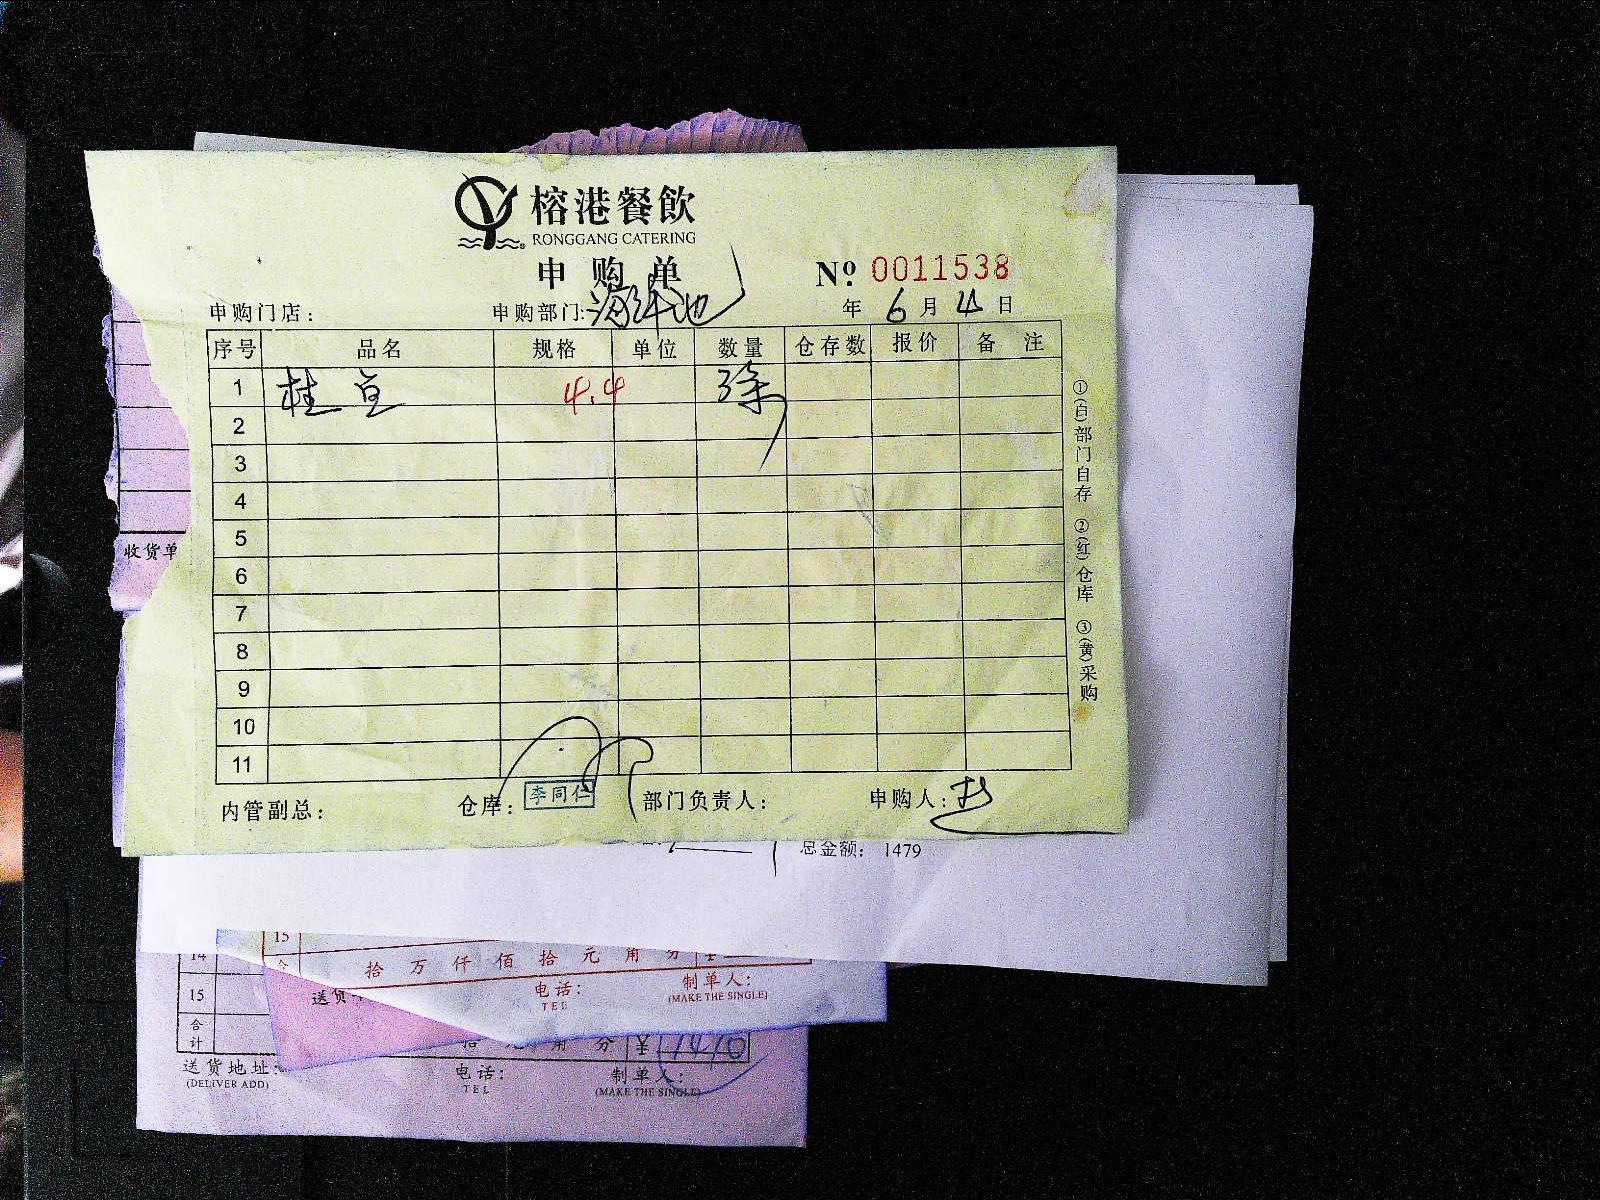 榕港餐飲
RONGGANG CATERING
申购单
№ 0011538
申购门店： 申购部门:海鲜池 年 6 月 4 日
序号 品名 规格 单位 数量 仓存数 报价 备注
1 桂鱼 4.4 3条
2
3
4
5
6
7
8
9
10
11
内管副总： 仓库： 李同仁 部门负责人： 申购人：
①(白)部门自存 ②(红)仓库 ③(黄)采购
收货单
总金额： 1479
15
拾 万 仟 佰 拾 元 角 分
电话：
TEL
制单人：
(MAKE THE SINGLE)
14
15
合计
拾 元 角 分 ¥ 1410
送货地址：
(DELIVER ADD)
电话：
TEL
制单人：
(MAKE THE SINGLE)